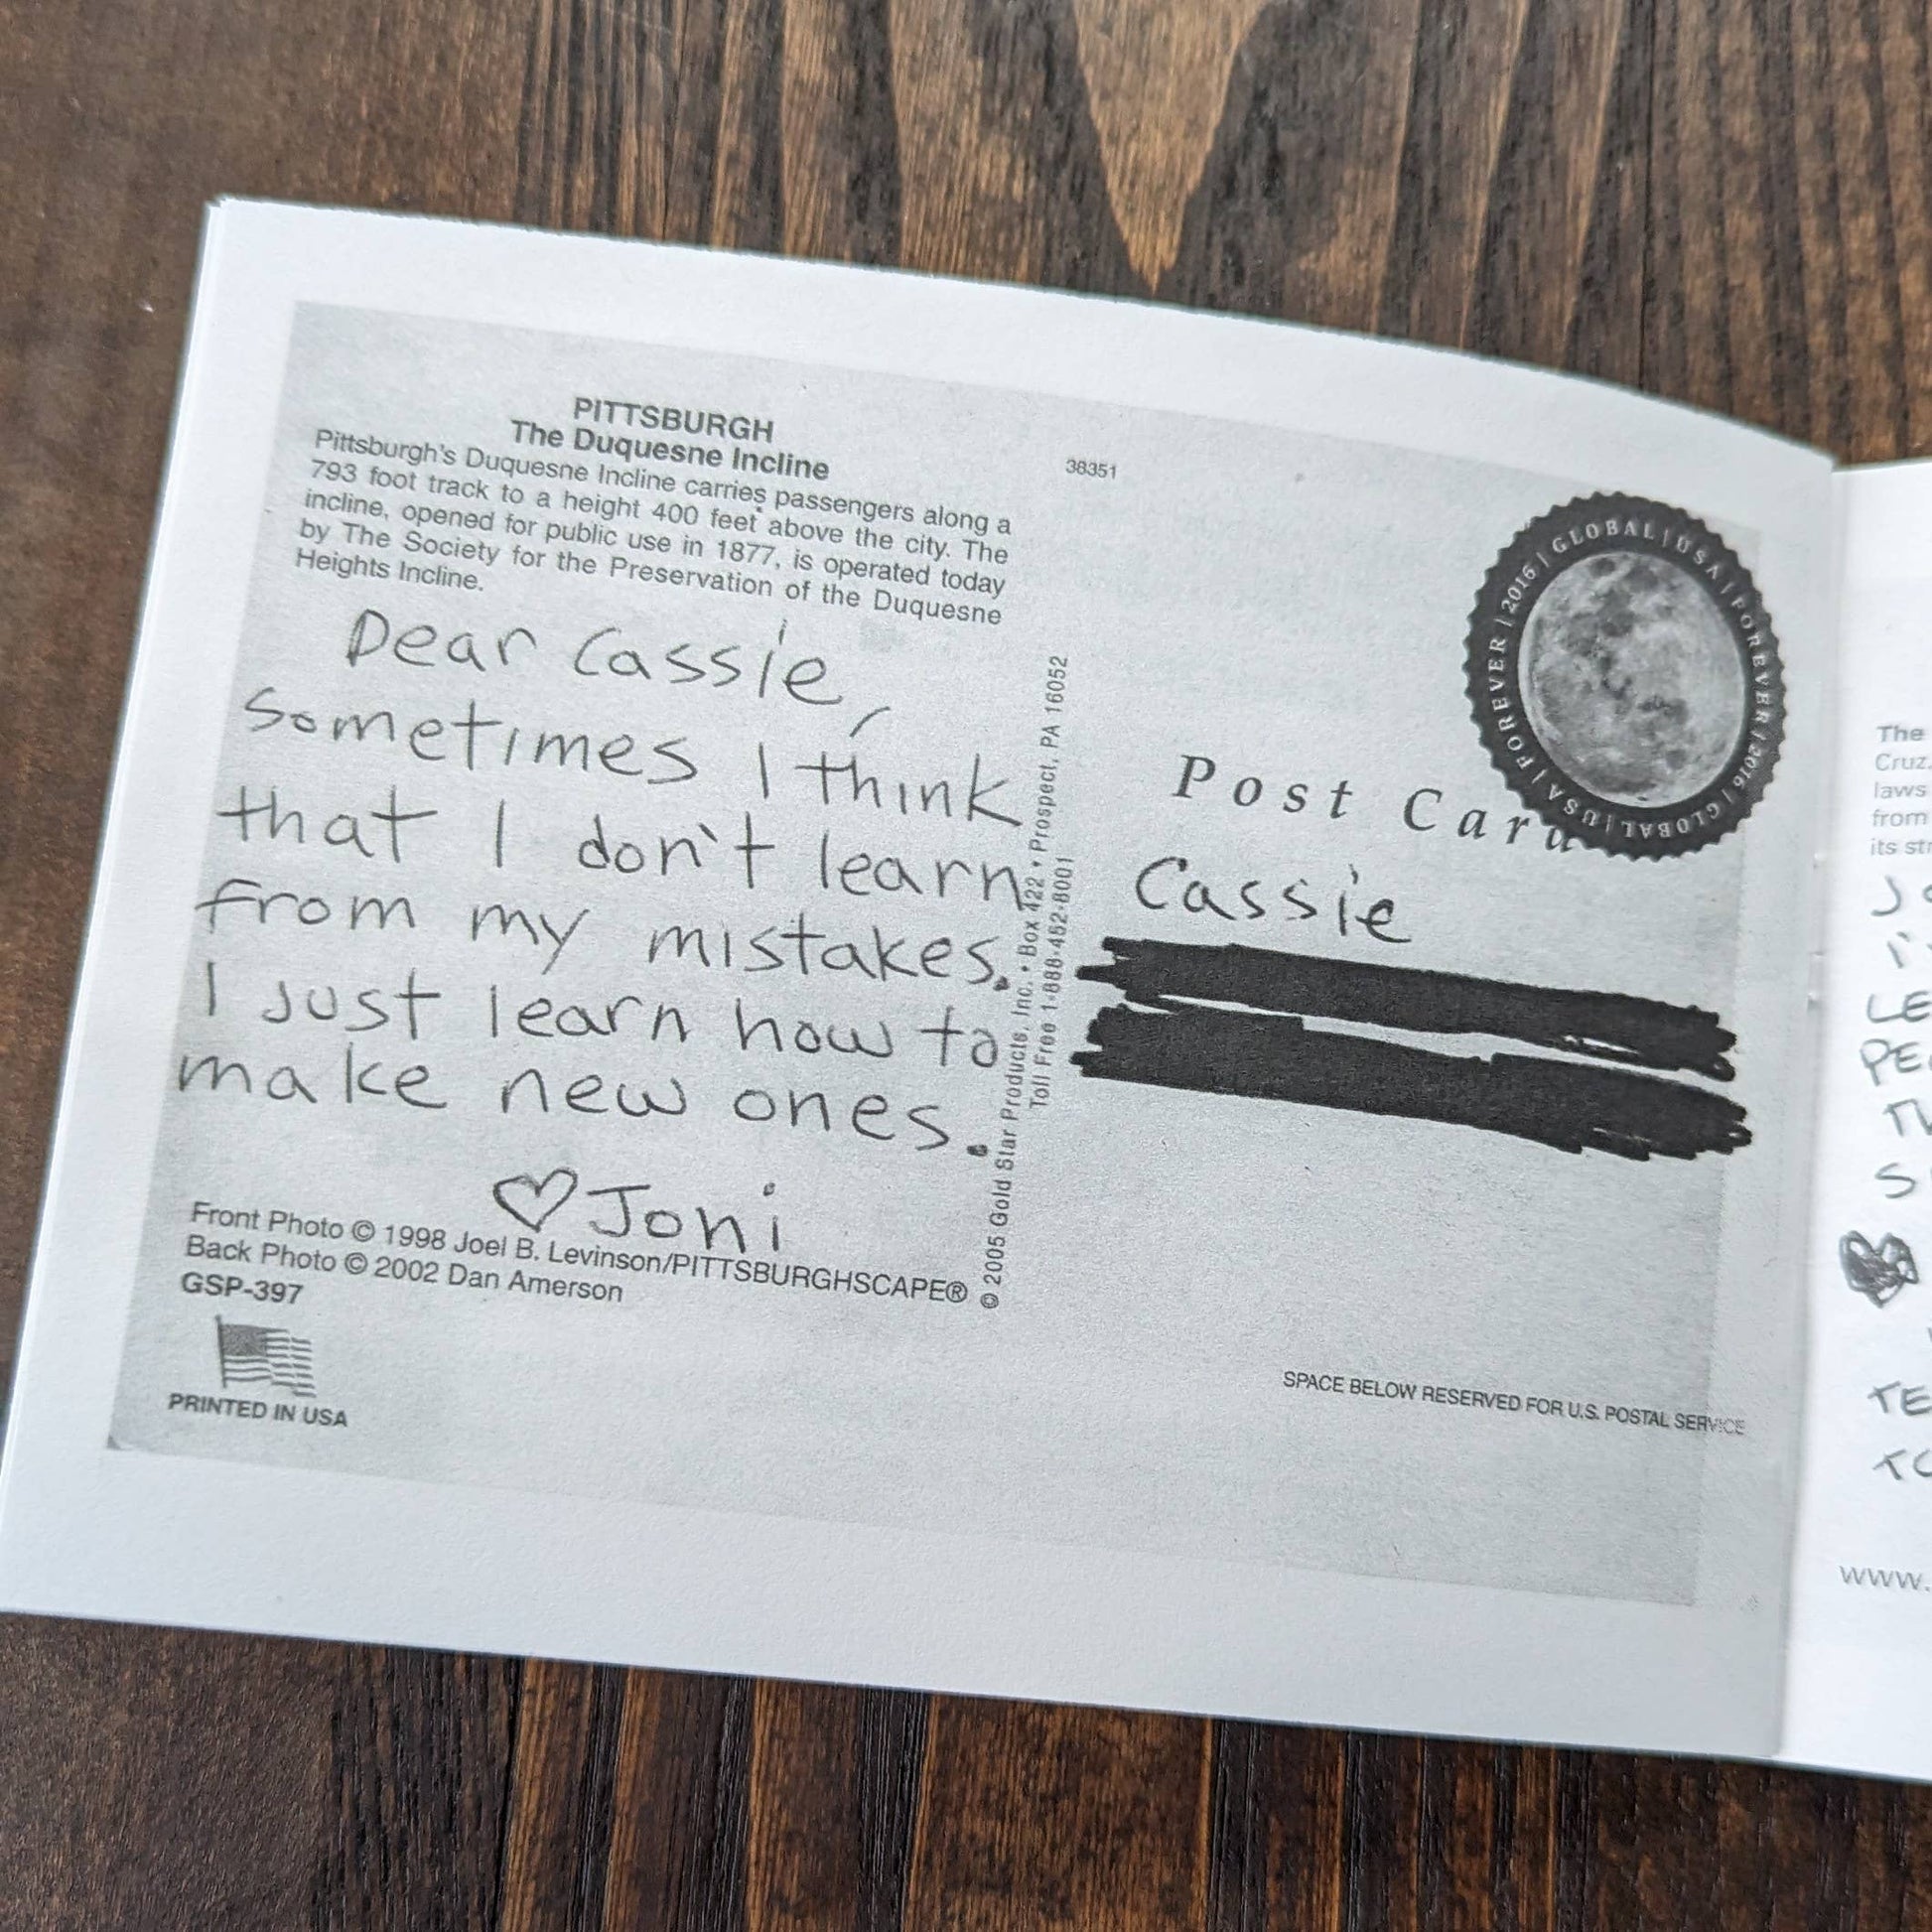 PITTSBURGH
The Duquesne Incline
Pittsburgh's Duquesne Incline carries passengers along a
793 foot track to a height 400 feet above the city. The
incline, opened for public use in 1877, is operated today
by The Society for the Preservation of the Duquesne
Heights Incline.
Dear Cassie,
Sometimes I think
that I don't learn
from my mistakes.
I just learn how to
make new ones.
♡ Joni
Front Photo © 1998 Joel B. Levinson/PITTSBURGHSCAPE®
Back Photo © 2002 Dan Amerson
GSP-397
PRINTED IN USA
© 2005 Gold Star Products, Inc. • Box 422 • Prospect, PA 16052
Toll Free 1-888-452-8001
38351
GLOBAL | USA | FOREVER | 2016 | GLOBAL | USA | FOREVER | 2016 |
Post Card
Cassie
SPACE BELOW RESERVED FOR U.S. POSTAL SERVICE
The
Cruz,
laws
from
its
LE
PE
S
TE
www.